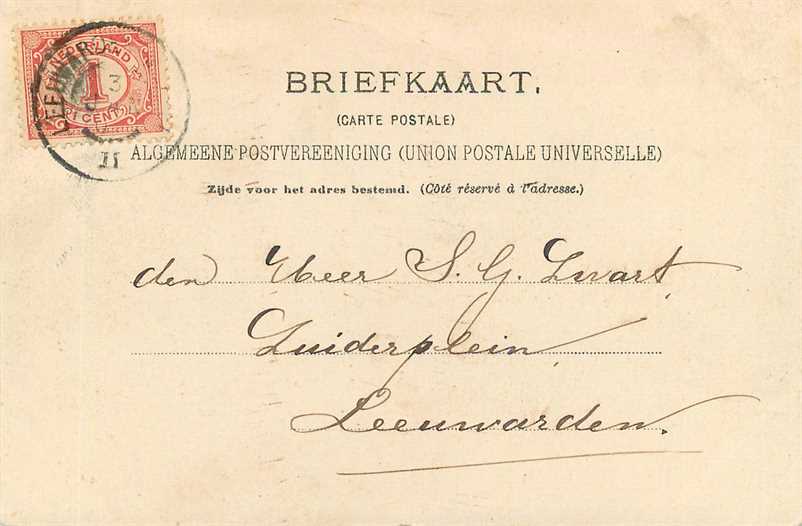 NEDERLAND
1
1 CENT 1
LEEUWARD
3
11
BRIEFKAART.
(CARTE POSTALE)
ALGEMEENE POSTVEREENIGING (UNION POSTALE UNIVERSELLE)
Zijde voor het adres bestemd. (Côté réservé à l'adresse.)
den Heer S. G. Zwart
Zuiderplein
Leeuwarden.